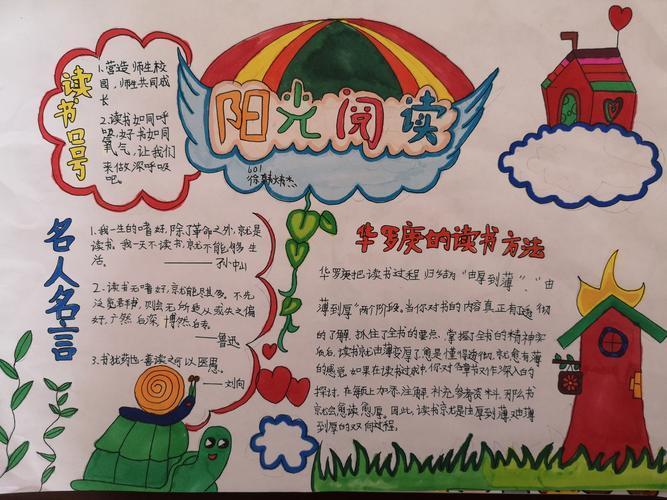 阳光阅读
601
读书口号
1.营造师生校
园，师生共同成
长
2.读书如同呼
吸，好书如同
氧气，让我们
来做深呼吸
吧。
名人名言
1.我一生的嗜好，除了革命之外，就是
读书。我一天不读书，就不能够生
活。
——孙中山
2.读书无嗜好，就能尽其多。不先
泛览群书，则会无所适从或失之偏
好，广然后深，博然后专。
——鲁迅
3.书犹药也，善读之可以医愚。
——刘向
华罗庚的读书方法
华罗庚把读书过程归结为"由厚到薄"、"由
薄到厚"两个阶段。当你对书的内容真正有了透彻
的了解，抓住了全书的要点，掌握了全书的精神实
质后，读书就由厚变薄了，愈是懂得透彻，就愈有薄
的感觉。如果在读书过程中，你对各章节又作深入的
探讨，在每页上加添注解，补充参考资料，那么书
就会愈读愈厚。因此，读书就是由厚到薄，又由薄
到厚的双向过程。